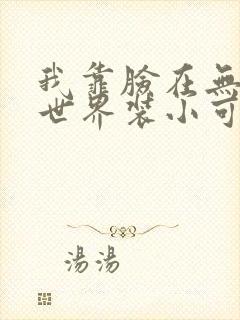 我靠臉在無
世界裝小可
湯湯